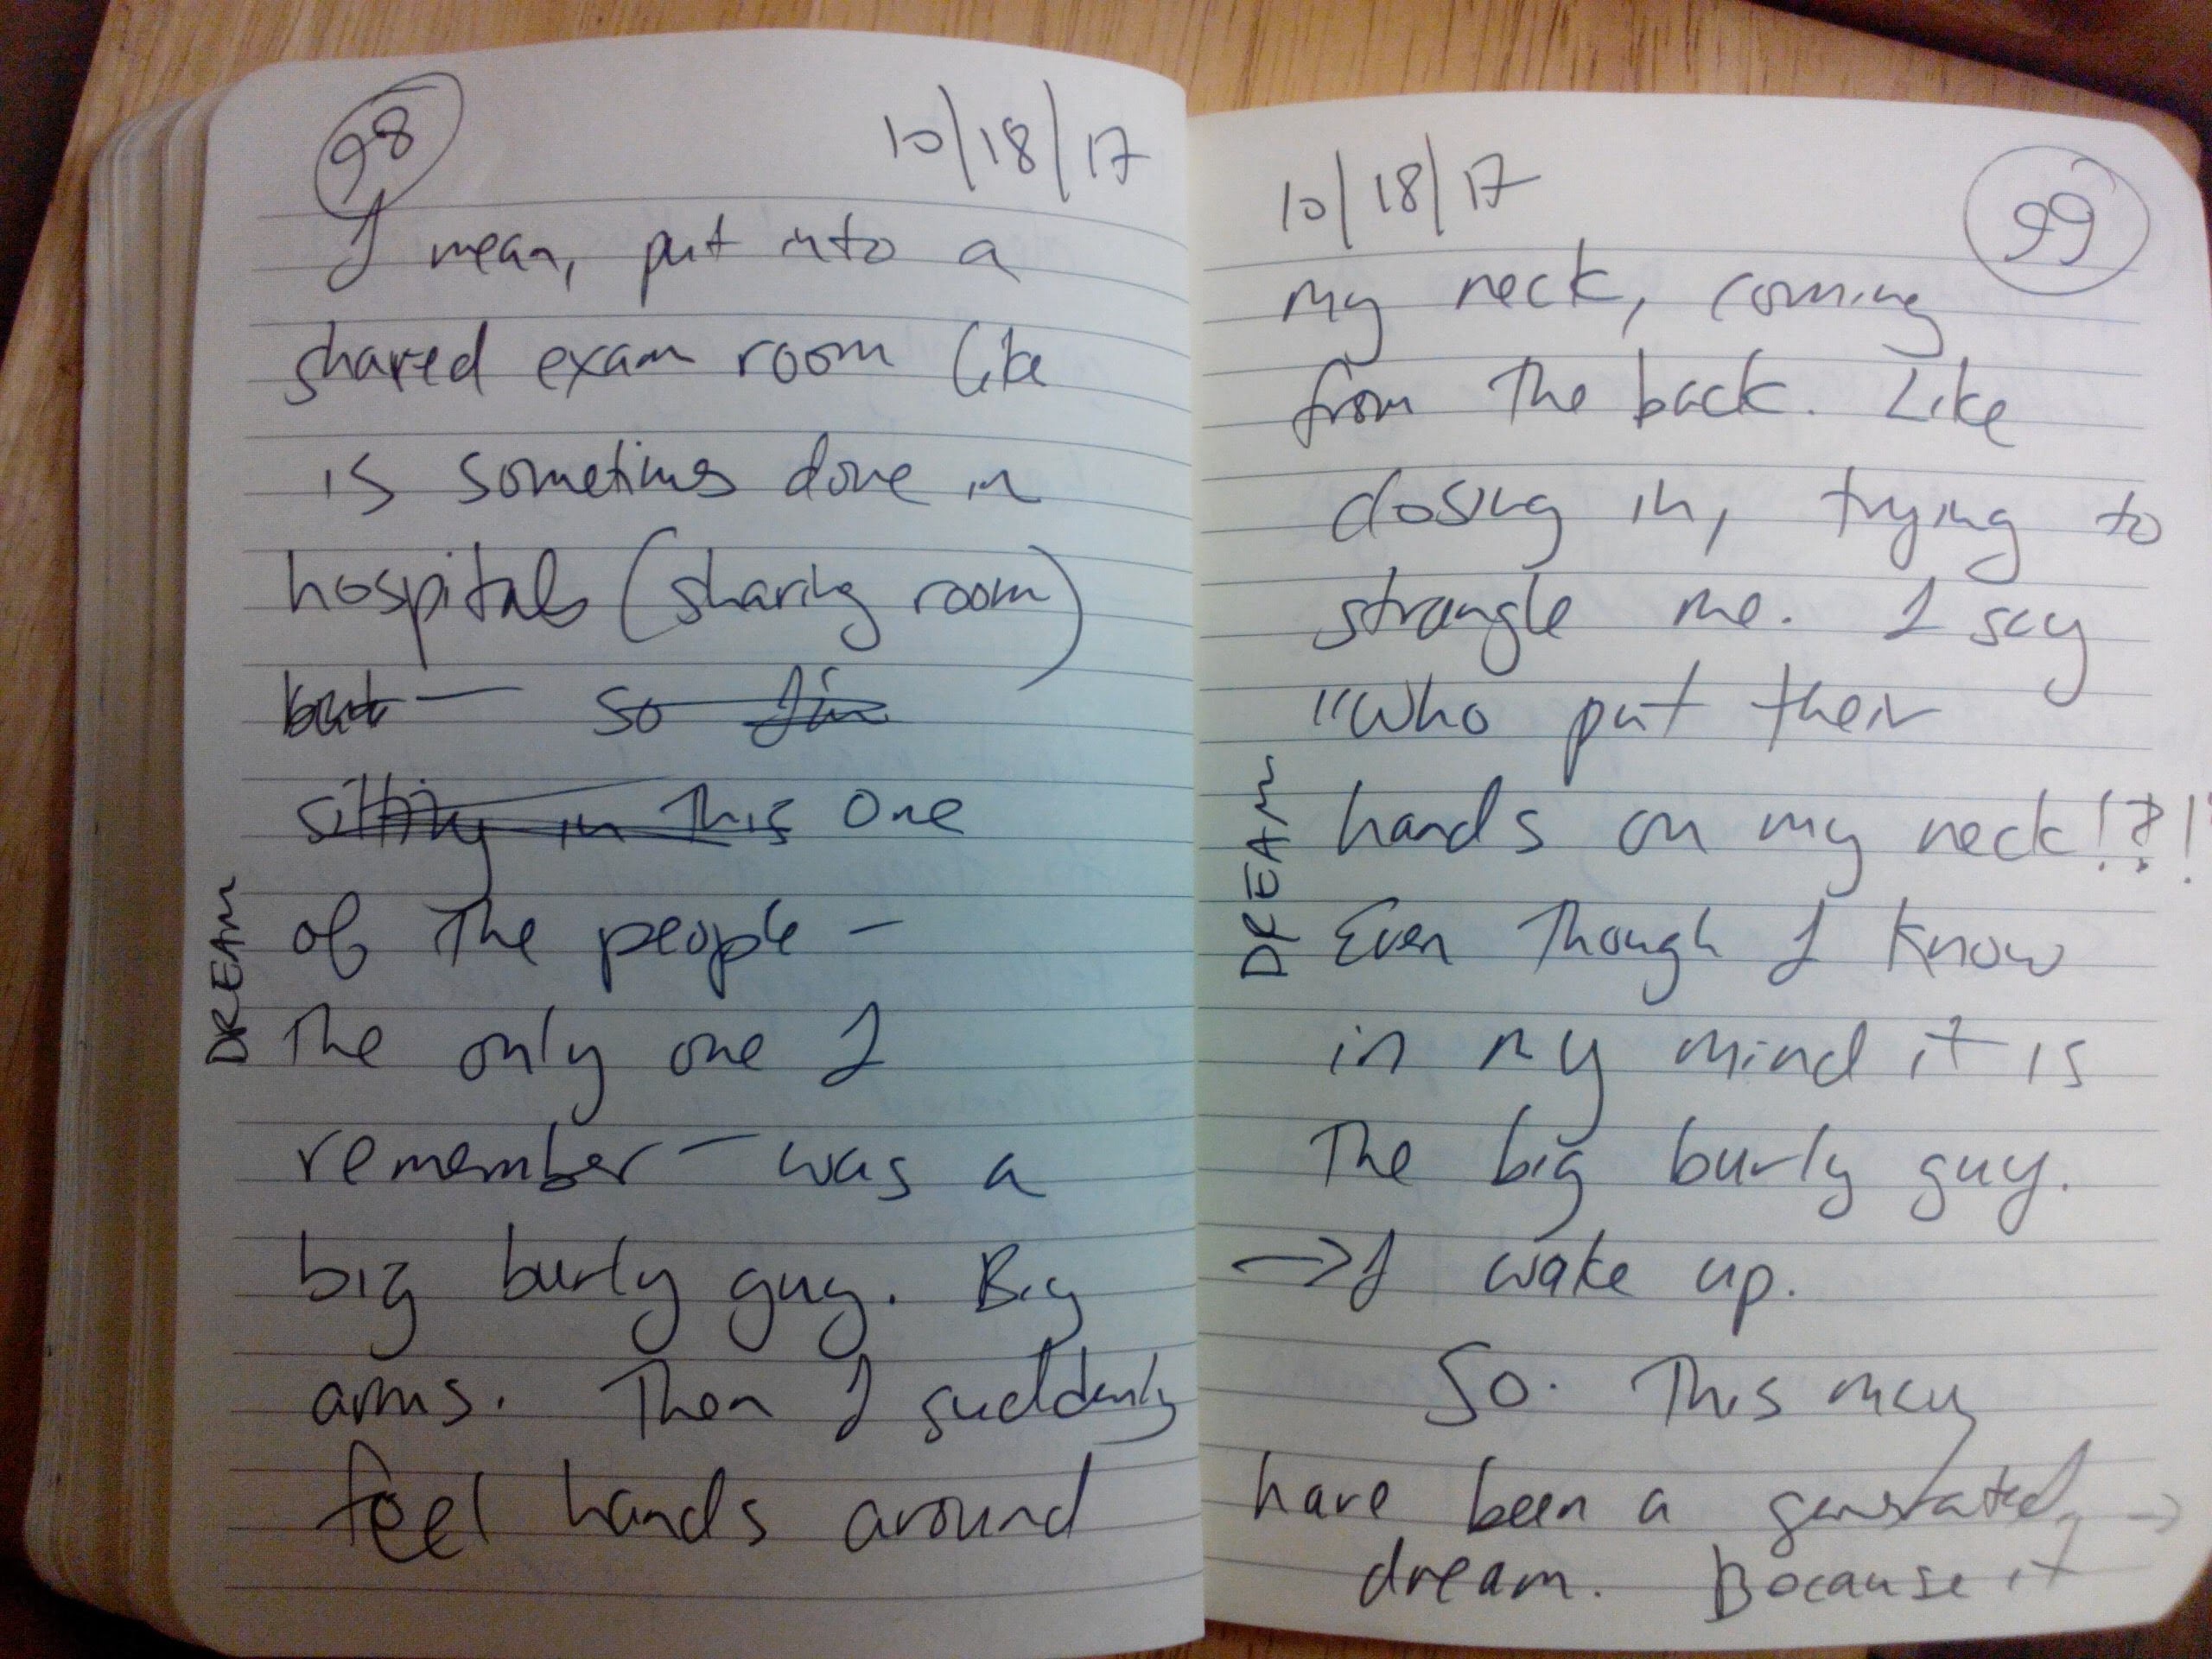 98
10/18/17
I mean, put into a
shared exam room like
is sometimes done in
hospitals (sharing room)
but — so I'm
sitting in this One
of The people —
The only one I
remember — was a
big burly guy. Big
arms. Then I suddenly
feel hands around
DREAM
10/18/17
99
my neck, coming
from The back. Like
closing in, trying to
strangle me. I say
"Who put their
hands on my neck!?!"
Even Though I know
in my mind it is
The big burly guy.
→ I wake up.
So. This may
have been a →
dream. Because it
DREAM